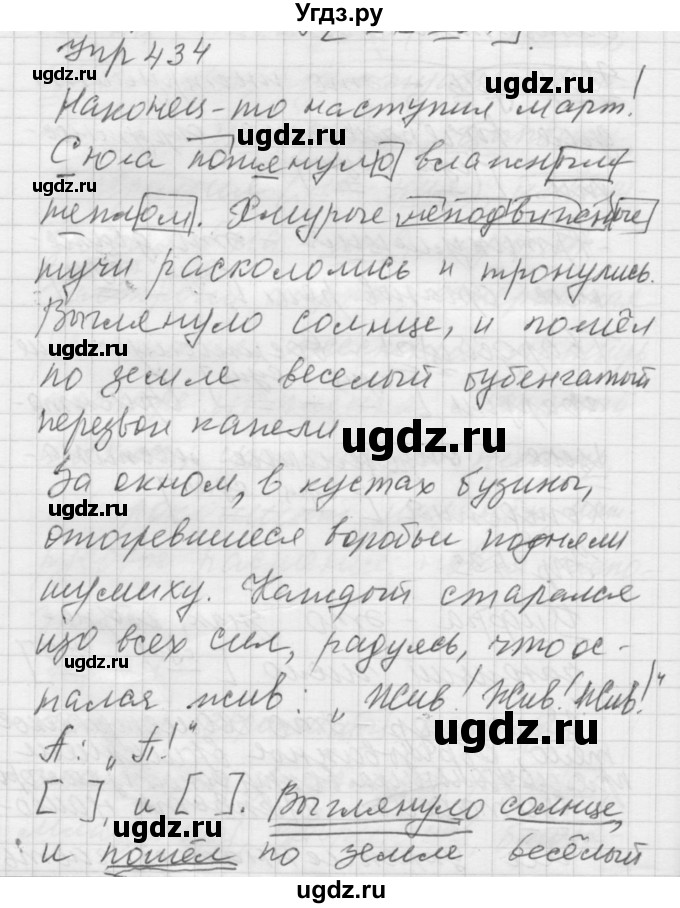 Угдз.ру
Упр 434
Наконец-то наступил март!
С юга потянуло влажным
теплом. Хмурые неподвижные
тучи раскололись и тронулись.
Выглянуло солнце, и пошёл
по земле веселый бубенчатый
перезвон капели
За окном, в кустах бузины,
отогревшиеся воробьи подняли
шумиху. Каждый старался
изо всех сил, радуясь, что ос-
тался жив: „Жив! Жив! Жив!"
А: „П!"
[ ], и [ ]. Выглянуло солнце,
и пошёл по земле весёлый
ugdz.ru
ugdz.ru
ugdz.ru
ugdz.ru
ugdz.ru
ugdz.ru
ugdz.ru
ugdz.ru
ugdz.ru
ugdz.ru
ugdz.ru
ugdz.ru
ugdz.ru
ugdz.ru